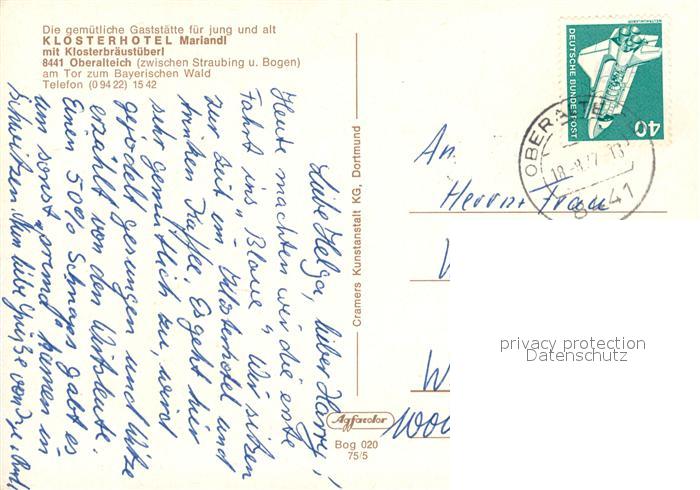 Die gemütliche Gaststätte für jung und alt
KLOSTERHOTEL Mariandl
mit Klosterbräustüberl
8441 Oberalteich (zwischen Straubing u. Bogen)
am Tor zum Bayerischen Wald
Telefon (0 94 22) 15 42
Liebe Helga, lieber Harry,
Heute machten wir die erste
Fahrt ins „Blaue". Wir sitzen
zur Zeit im Klosterhotel und
trinken Kaffee. Es geht hier
sehr gemütlich zu, wird
gejodelt gesungen und Witze
erzählt von den Wirtsleute.
Einen 50% Schnaps gabt es
um sonst, kamen in
Schwitzen. Nun liebe Grüße von
Cramers Kunstanstalt KG, Dortmund
Agfacolor
Bog 020
75/5
DEUTSCHE BUNDESPOST
40
OBERALTEI
8441
An
Herrn + Frau
W
1000
privacy protection
Datenschutz